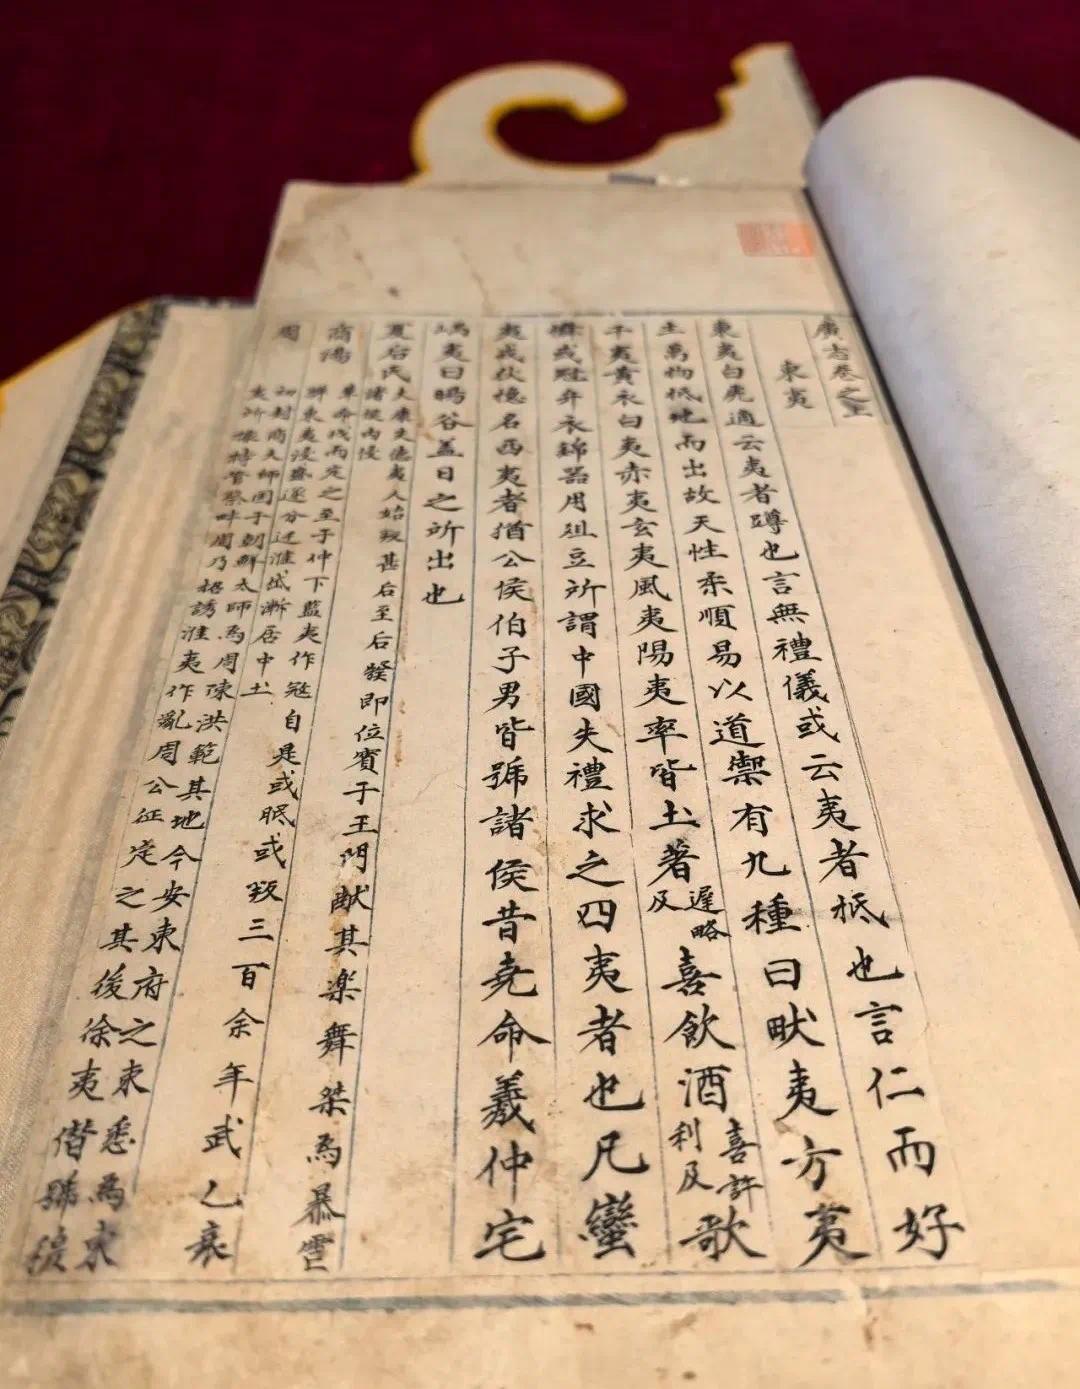 廣志卷之
東夷
東夷白虎通云夷者蹲也言無禮儀或云夷者柢也言仁而好
生萬物柢地而出故天性柔順易以道禦有九種曰畎夷方夷
于夷黃衣白夷赤夷玄夷風夷陽夷率皆土著遅略及喜飲酒喜許利及歌
儛或冠弁衣錦器用俎豆所謂中國失禮求之四夷者也凡蠻
夷戎狄總名四夷者猶公侯伯子男皆號諸侯昔堯命羲仲宅
嵎夷曰暘谷蓋日之所出也
夏后氏太康失德夷人始叛甚后至后發即位賓于王門献其楽舞桀為暴虐
諸侯內侵
商湯革命伐而定之至于仲下藍夷作寇自是或服或叛三百余年武乙衰
獘東夷浸盛遂分迁淮岱漸居中土
周初封商太師國于朝鮮太師為周陳洪範其地今安東府之東悉為東
夷所據特管蔡畔周乃招誘淮夷作亂周公征定之其後徐夷僭號